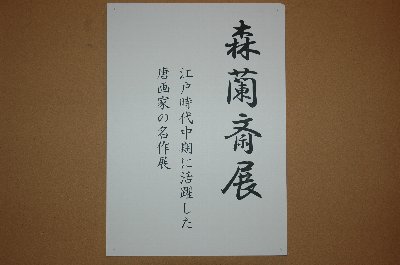 森蘭斎展
江戸時代中期に活躍した
唐画家の名作展